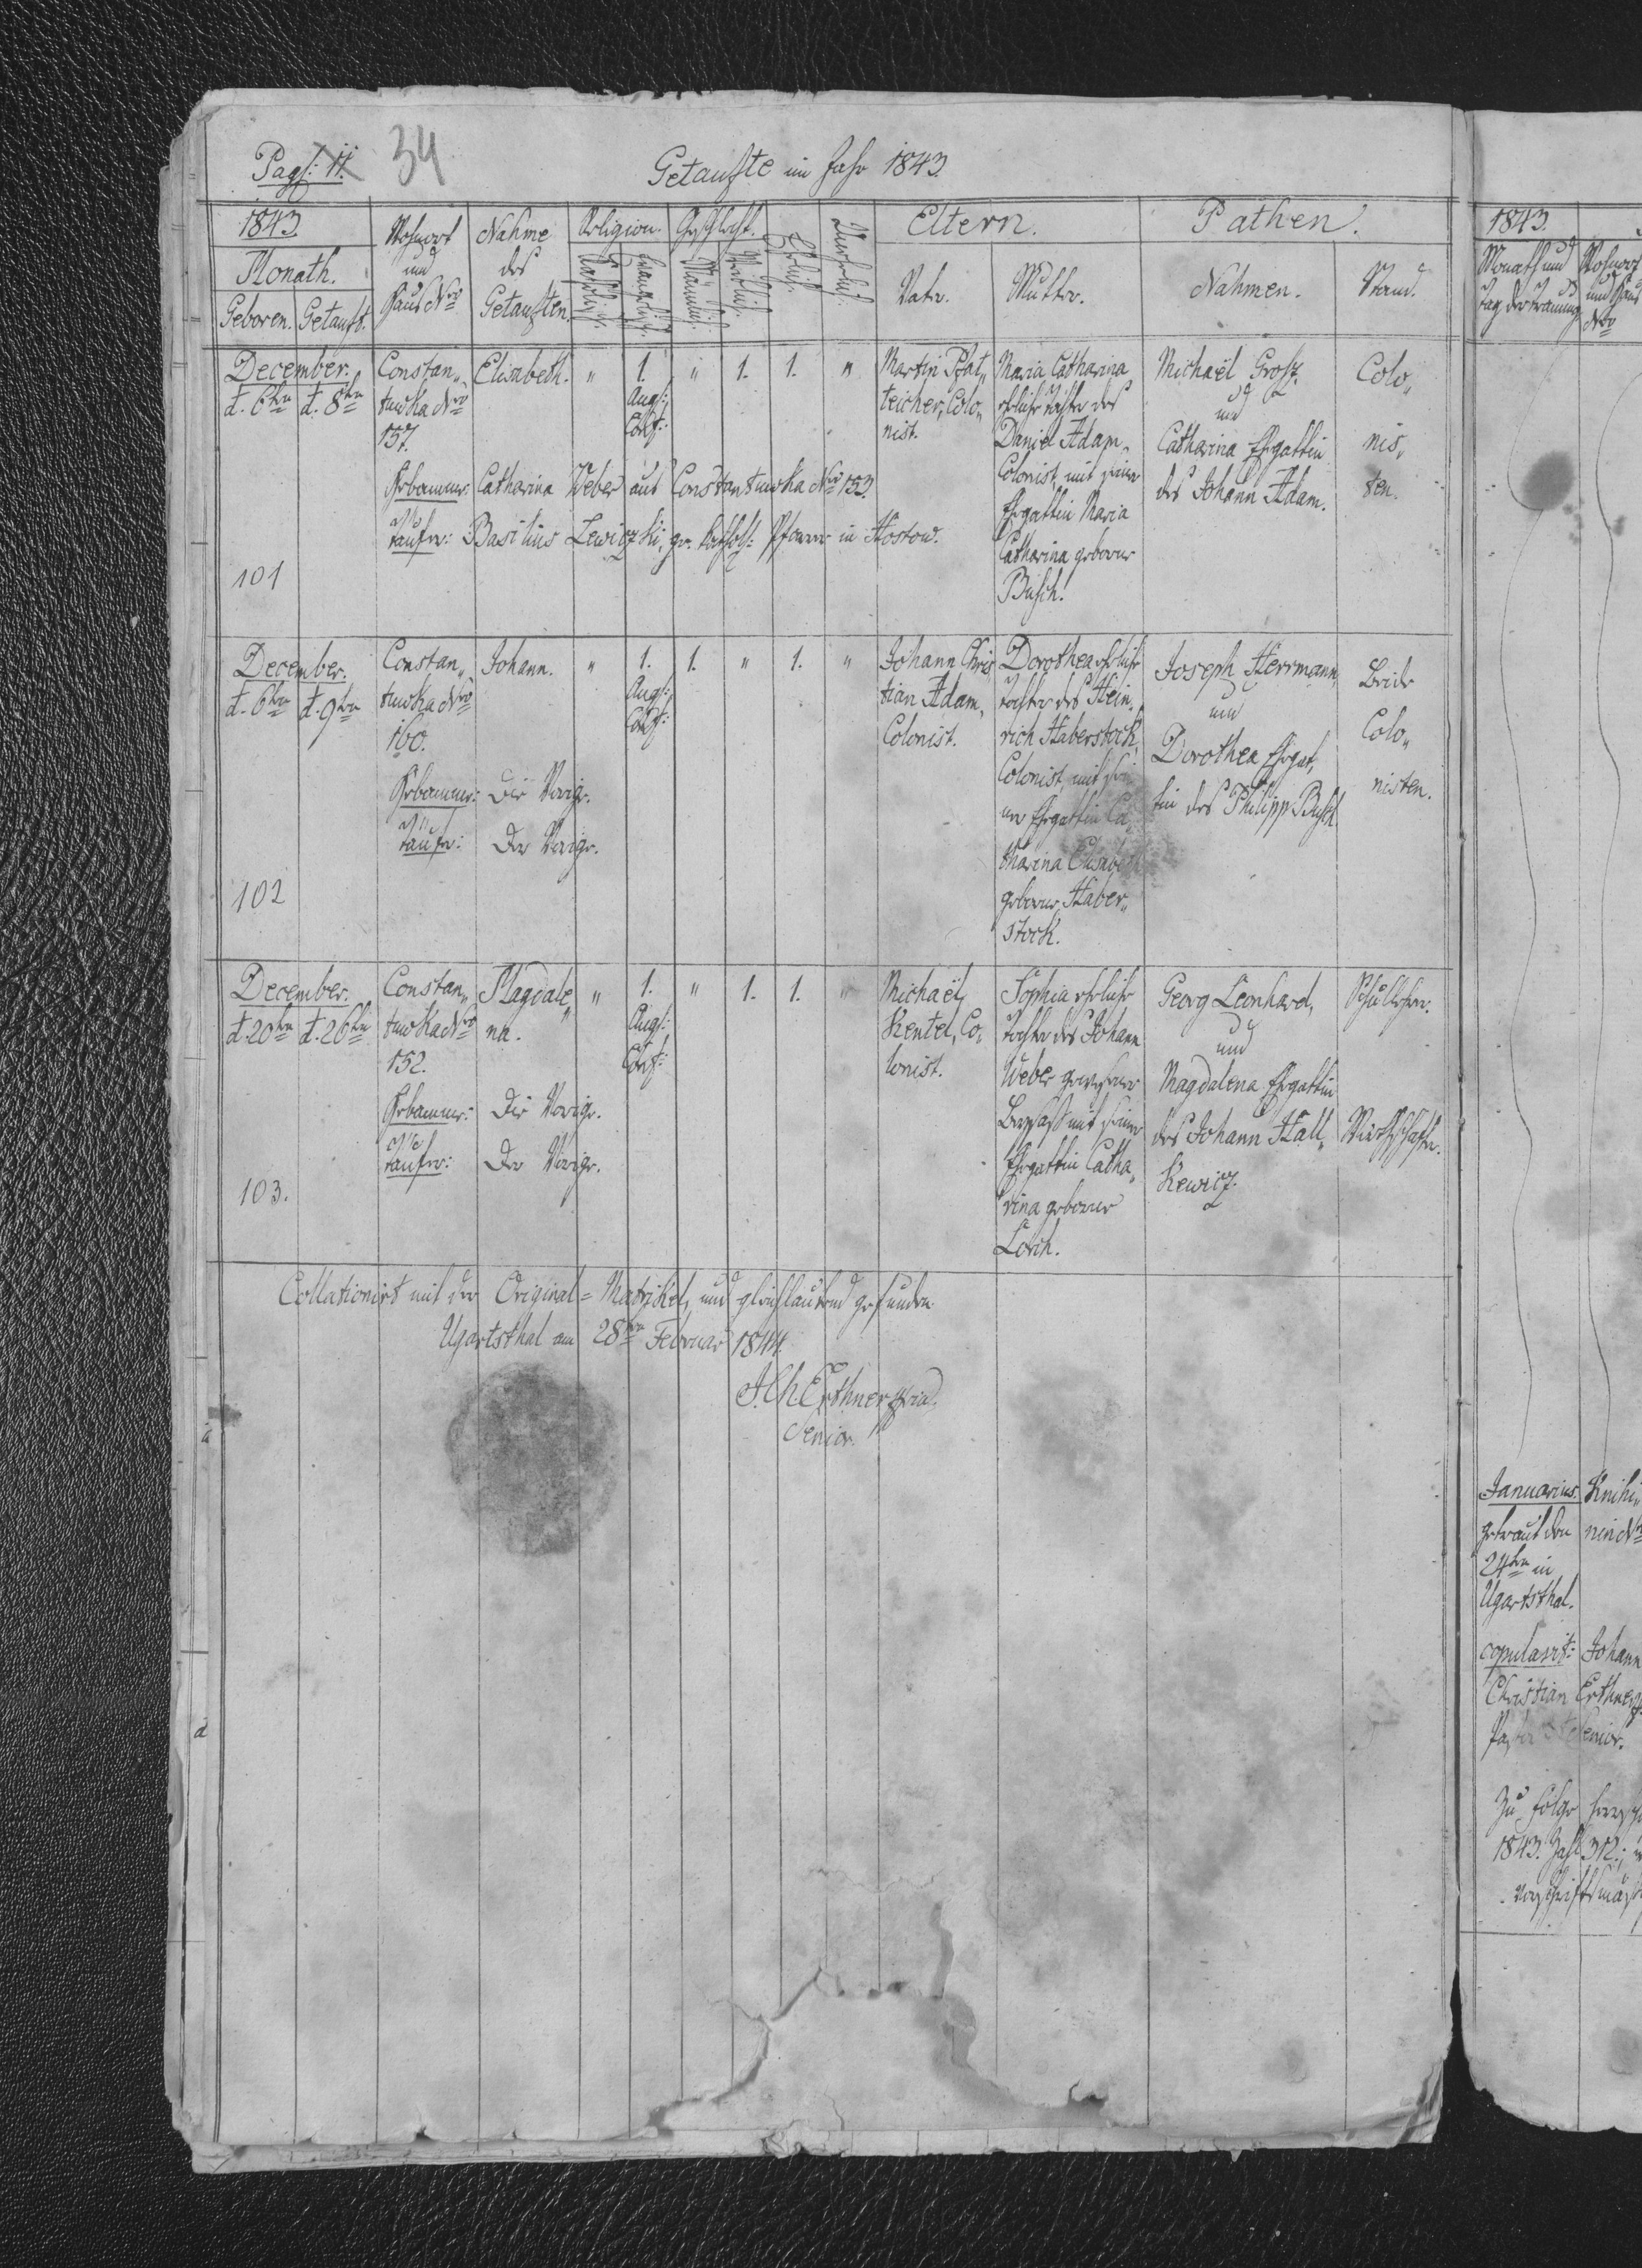 Pag: 11. 34
Getaufte im Jahr 1843.
1843.
Monath.
Geboren. Getauft.
Wohnort
und
Haus Nro
Nahme
des
Getauften.
Religion.
Katholisch.
Evangelisch.
Geschlecht.
Männlich.
Weiblich.
Ehelich.
Unehelich.
Eltern.
Vater. Mutter.
Pathen.
Nahmen. Stand.
December.
d. 6ten d. 8ten
Constan„
tuwka Nro
157.
Elisabeth. " 1. " 1. 1. "
Augs:
Conf:
Martin Plat„
teicher, Colo„
nist.
Maria Catharina
eheliche Tochter des
Daniel Adam,
Colonist, mit seiner
Ehegattin Maria
Catharina geborne
Busch.
Michaël Grosz.
und
Catharina Ehegattin
des Johann Adam.
Colo„
nis„
ten.
Hebamme: Catharina Weber aus Constantuwka Nro 153.
Täufer: Basilius Lewiczki, gr. kathol: Pfarrer in Hostow.
101
December.
d. 6ten d. 9ten
Constan„
tuwka Nro
160.
Johann. " 1. 1. " 1. "
Augs:
Conf:
Johann Chris
tian Adam,
Colonist.
Dorothea eheliche
Tochter des Hein„
rich Haberstock,
Colonist, mit sei„
ner Ehegattin Ca„
tharina Elisabeth
geborne Haber„
stock.
Joseph Herrmann,
und
Dorothea Ehegat„
tin des Philipp Busch.
Beide
Colo„
nisten.
Hebamme: Die Vorige.
Täufer: Der Vorige.
102
December.
d. 20ten d. 26ten
Constan„
tuwka Nro
152.
Magdale„
na.
" 1. " 1. 1. "
Augs:
Conf:
Michaël
Kentel, Co„
lonist.
Sophia eheliche
Tochter des Johann
Weber gewesener
mit seiner
Ehegattin Catha„
rina geborne
Lorch.
Georg Leonhard,
und
Magdalena Ehegattin
des Johann Hall„
kewicz.
Schullehrer.
Wirthschafter.
Hebamme: Die Vorige.
Täufer: Der Vorige.
103.
Collationirt mit der Original=Matrikel, und gleichlautend gefunden.
Ugartsthal am 28ten Februar 1844.
J. Ch. Erthner
Senior.
1843.
Monath und
Tag der Trauung
Wohnort
und Haus
Nro
Januarius. Knihi„
getraut den nin Nro
24ten in
Ugartsthal.
copulavit: Johann
Christian Erthner,
Senior.
Zu Folge
1843. Zahl 312;
vorschriftsmäß